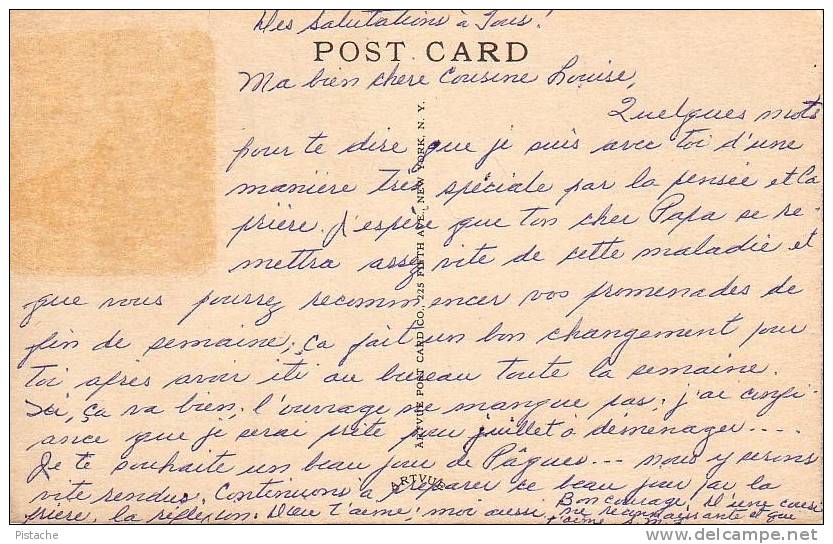 Mes Salutations à Tous!
POST CARD
Ma bien chere Cousine Louise,
Quelques mots
pour te dire que je suis avec toi d'une
manière très spéciale par la pensée et la
prière. J'espère que ton cher Papa se re-
mettra assez vite de cette maladie et
que vous pourrez recommencer vos promenades de
fin de semaine; ça fait un bon changement pour
toi après avoir été au bureau toute la semaine.
Ici, ça va bien; l'ouvrage ne manque pas; j'ai confi-
ance que je serai prête pour juillet à déménager....
Je te souhaite un beau jour de Pâques... nous y serons
vite rendus. Continuons à préparer ce beau jour par la
prière, la réflexion. Dieu t'aime; moi aussi.
Bon courage. D'une cousi
ne reconnaissante et qui
t'aime
ARTVUE POST CARD CO., 225 FIFTH AVE., NEW YORK, N. Y.
ARTVUE
Pistache
delcampe.net